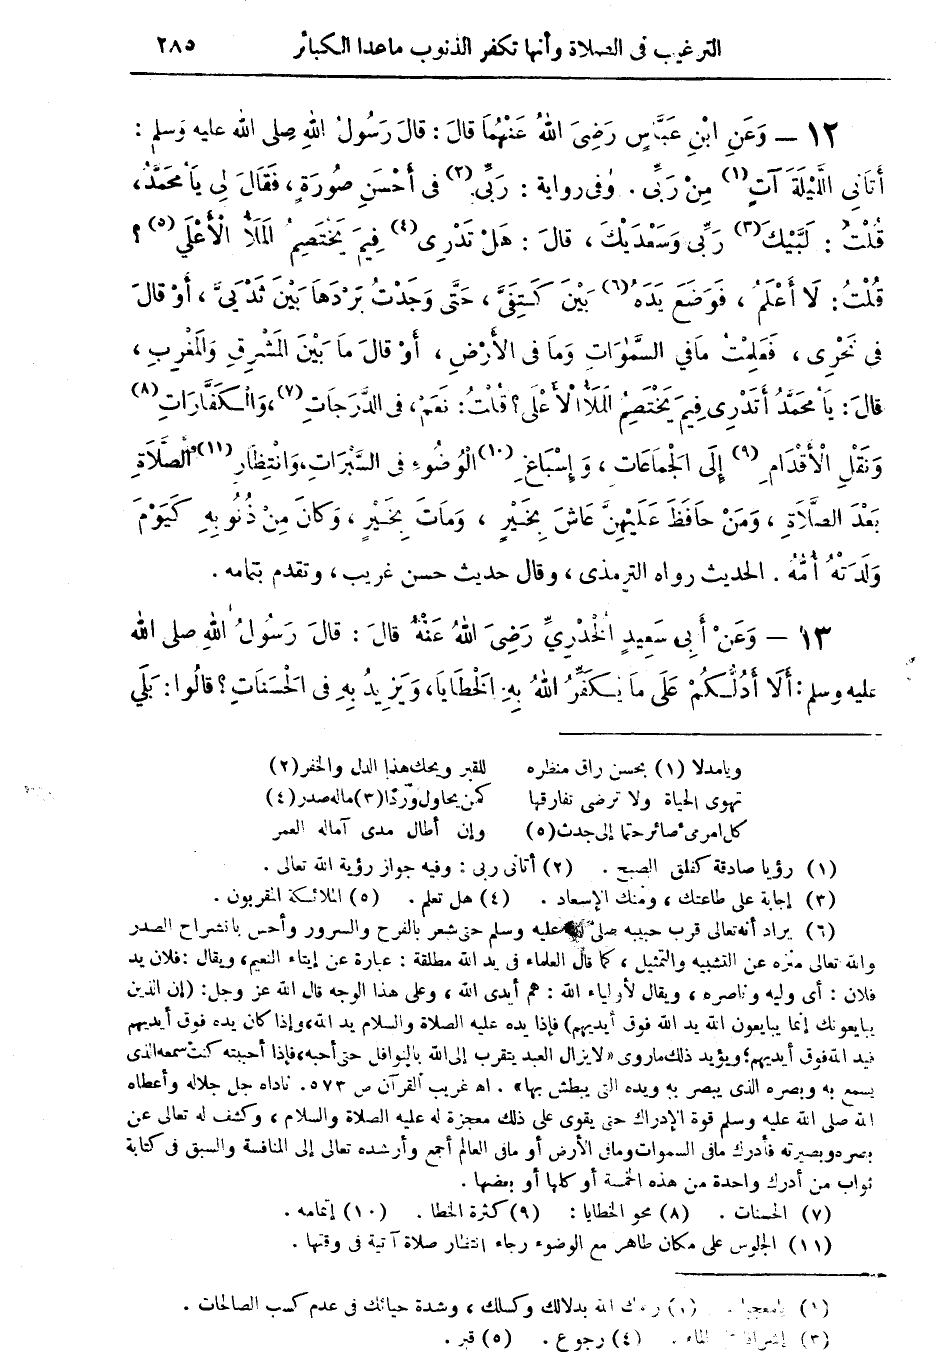 الترغيب فى الصلاة وأنها تكفر الذنوب ماعدا الكبائر ٢٨٥
١٢ – وَعَنِ ابْنِ عَبَّاسٍ رَضِىَ اللهُ عَنْهُمَا قالَ : قالَ رَسُولُ اللهِ صلى الله عليه وسلم :
أَتَانِى اللَّيْلَةَ آتٍ (١) مِنْ رَبِّى . وفى رواية : رَبِّى (٢) فى أَحْسَنِ صُورَةٍ ، فَقَالَ لِى يَا مُحَمَّدُ ،
قُلْتُ : لَبَّيْكَ (٣) رَبِّى وَسَعْدَيْكَ ، قالَ : هَلْ تَدْرِى (٤) فِيمَ يَخْتَصِمُ المَلَأُ الْأَعْلَى (٥) ؟
قُلْتُ : لَا أَعْلَمُ ، فَوَضَعَ يَدَهُ (٦) بَيْنَ كَتِفَىَّ ، حَتَّى وَجَدْتُ بَرْدَهَا بَيْنَ ثَدْيَىَّ ، أَوْ قالَ
فى نَحْرِى ، فَعَلِمْتُ مَافِى السَّمٰوَاتِ وَمَا فى الأَرْضِ ، أَوْ قالَ مَا بَيْنَ المَشْرِقِ وَالمَغْرِبِ ،
قالَ : يَا مُحَمَّدُ أَتَدْرِى فِيمَ يَخْتَصِمُ المَلَأُ الْأَعْلَى ؟ قُلْتُ : نَعَمْ ، فى الدَّرَجَاتِ (٧) ، وَالْكَفَّارَاتِ (٨)
وَنَقْلِ الْأَقْدَامِ (٩) إِلَى الجَمَاعَاتِ ، وَإِسْبَاغِ (١٠) الْوُضُوءِ فى السَّبَرَاتِ ، وَانْتِظَارِ (١١) الصَّلَاةِ
بَعْدَ الصَّلَاةِ ، وَمَنْ حَافَظَ عَلَيْهِنَّ عَاشَ بِخَيْرٍ ، وَمَاتَ بِخَيْرٍ ، وَكَانَ مِنْ ذُنُوبِهِ كَيَوْمَ
وَلَدَتْهُ أُمُّهُ . الحديث رواه الترمذى ، وقال حديث حسن غريب ، وتقدم بتمامه .
١٣ – وَعَنْ أَبِى سَعِيدٍ الْخُدْرِىِّ رَضِىَ اللهُ عَنْهُ قالَ : قالَ رَسُولُ اللهِ صلى الله
عليه وسلم : أَلَا أَدُلُّكُمْ عَلَى مَا يُكَفِّرُ اللهُ بِهِ الْخَطَايَا ، وَيَزِيدُ بِهِ فى الْحَسَنَاتِ ؟ قالُوا : بَلَى
ويامدلا (١) بحسن راق منظره للقبر ويحك هذا الدل والخفر (٢)
تهوى الحياة ولا ترضى تفارقها كمن يحاول وِرْدًا (٣) ماله صدر (٤)
كل امرىء صائر حتما إلى جدث (٥) وإن أطال مدى آماله العمر
(١) رؤيا صادقة كفلق الصبح . (٢) أتانى ربى : وفيه جواز رؤية الله تعالى .
(٣) إجابة على طاعتك ، ومنك الإسعاد . (٤) هل تعلم . (٥) الملائكة المقربون .
(٦) يراد أنه تعالى قرب حبيبه صلى عليه وسلم حتى شعر بالفرح والسرور وأحس بانشراح الصدر
والله تعالى منزه عن التشبيه والتمثيل ، كما قال العلماء فى يد الله مطلقة : عبارة عن إيتاء النعيم ، ويقال : فلان يد
فلان : أى وليه وناصره ، ويقال لأولياء الله : هم أيدى الله ، وعلى هذا الوجه قال الله عز وجل : (إن الذين
يبايعونك إنما يبايعون الله يد الله فوق أيديهم) فإذا يده عليه الصلاة والسلام يد الله ، وإذا كان يده فوق أيديهم
فيد الله فوق أيديهم ؛ ويؤيد ذلك ماروى «لايزال العبد يتقرب إلى الله بالنوافل حتى أحبه ، فإذا أحببته كنت سمعه الذى
يسمع به وبصره الذى يبصر به ويده التى يبطش بها» . اهـ غريب القرآن ص ٥٧٣ . ناداه جل جلاله وأعطاه
الله صلى الله عليه وسلم قوة الإدراك حتى يقوى على ذلك معجزة له عليه الصلاة والسلام ، وكشف له تعالى عن
بصره وبصيرته فأدرك مافى السموات ومافى الأرض أو مافى العالم أجمع وأرشده تعالى إلى المنافسة والسبق فى كتابة
ثواب من أدرك واحدة من هذه الخمسة أو كلها أو بعضها .
(٧) الحسنات . (٨) محو الخطايا : (٩) كثرة الخطا . (١٠) إتمامه .
(١١) الجلوس على مكان طاهر مع الوضوء رجاء انتظار صلاة آتية فى وقتها .
(١) يامعجبا . (٢) الله بدلالك وكسلك ، وشدة حيائك فى عدم كسب الصالحات .
(٣) الماء . (٤) رجوع . (٥) قبر .